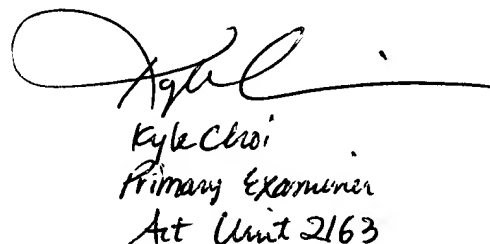 Kyle Choi
Primary Examiner
Art Unit 2163